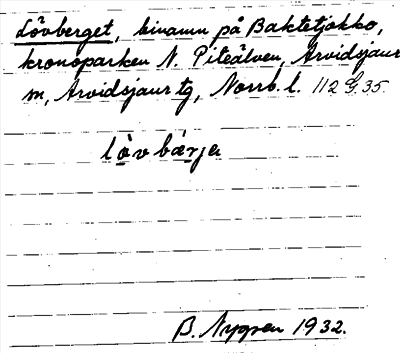 Lövberget, binamn på Baktetjåkko,
kronoparken N. Piteälven, Arvidsjaur
sn, Arvidsjaur tg, Norrb. l. 112 G. 35.
lövbärje
B. Nygren 1932.